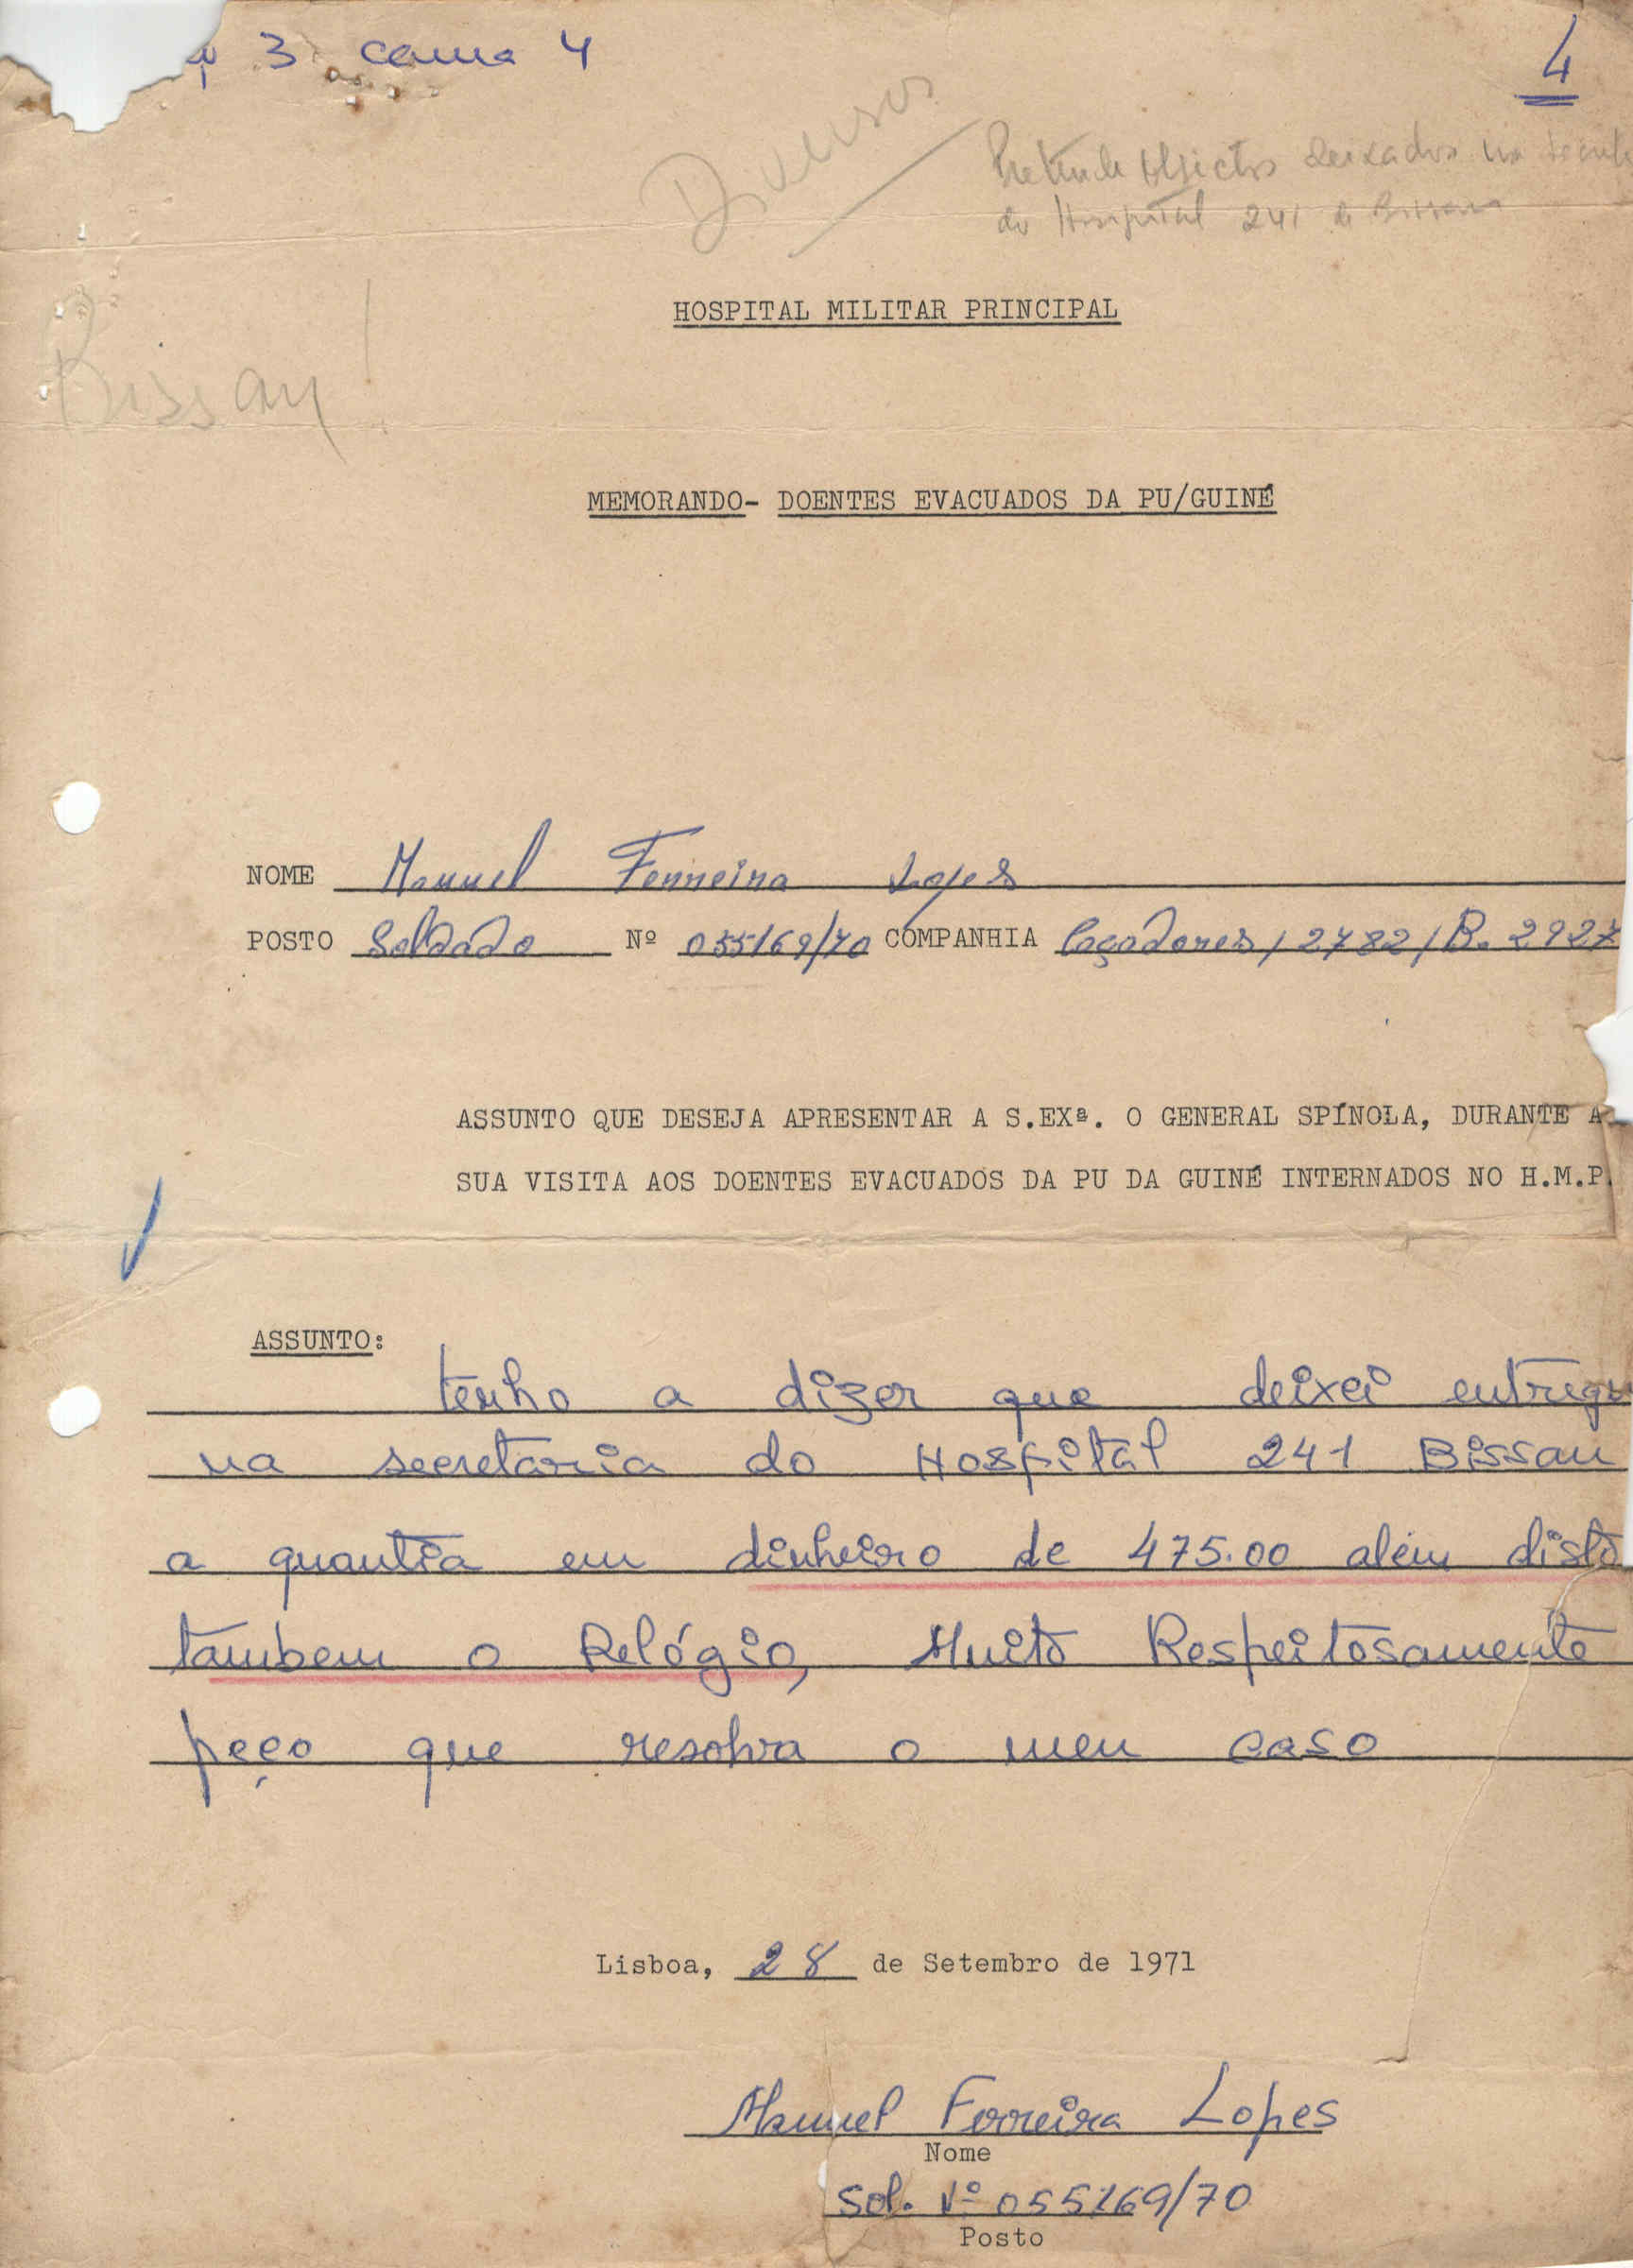 3 cama 4
4
Diversos
Pretende objectos deixados na
do Hospital 241 de Bissau
HOSPITAL MILITAR PRINCIPAL
Bissau!
MEMORANDO- DOENTES EVACUADOS DA PU/GUINÉ
NOME Manuel Ferreira Lopes
POSTO Soldado Nº 055169/70 COMPANHIA Caçadores / 2782 / B. 2927
ASSUNTO QUE DESEJA APRESENTAR A S.EXª. O GENERAL SPÍNOLA, DURANTE A
SUA VISITA AOS DOENTES EVACUADOS DA PU DA GUINÉ INTERNADOS NO H.M.P.
ASSUNTO:
tenho a dizer que deixei entregue
na secretaria do Hospital 241 Bissau
a quantia em dinheiro de 475.00 além disto
tambem o Relógio, Muito Respeitosamente
peço que resolva o meu caso
Lisboa, 28 de Setembro de 1971
Manuel Ferreira Lopes
Nome
Sol. Nº 055169/70
Posto